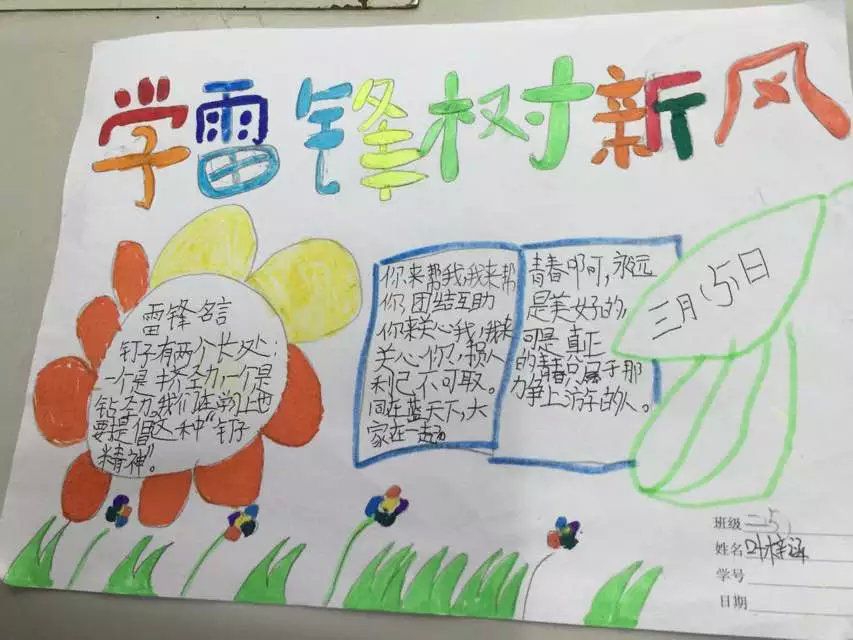 学雷锋树新风
雷锋名言
钉子有两个长处:
一个是挤劲力一个是
钻劲力。我们在学习上也
要提倡这种"钉子
精神"。
你来帮我,我来帮
你,团结互助
你来关心我,我来
关心你,损人
利己不可取。
同在蓝天下,大
家在一起
青春啊,永远
是美好的,
可是真正
的青春只属于那
力争上游的人。
三月五日
班级 二5
姓名 叶梓涵
学号
日期